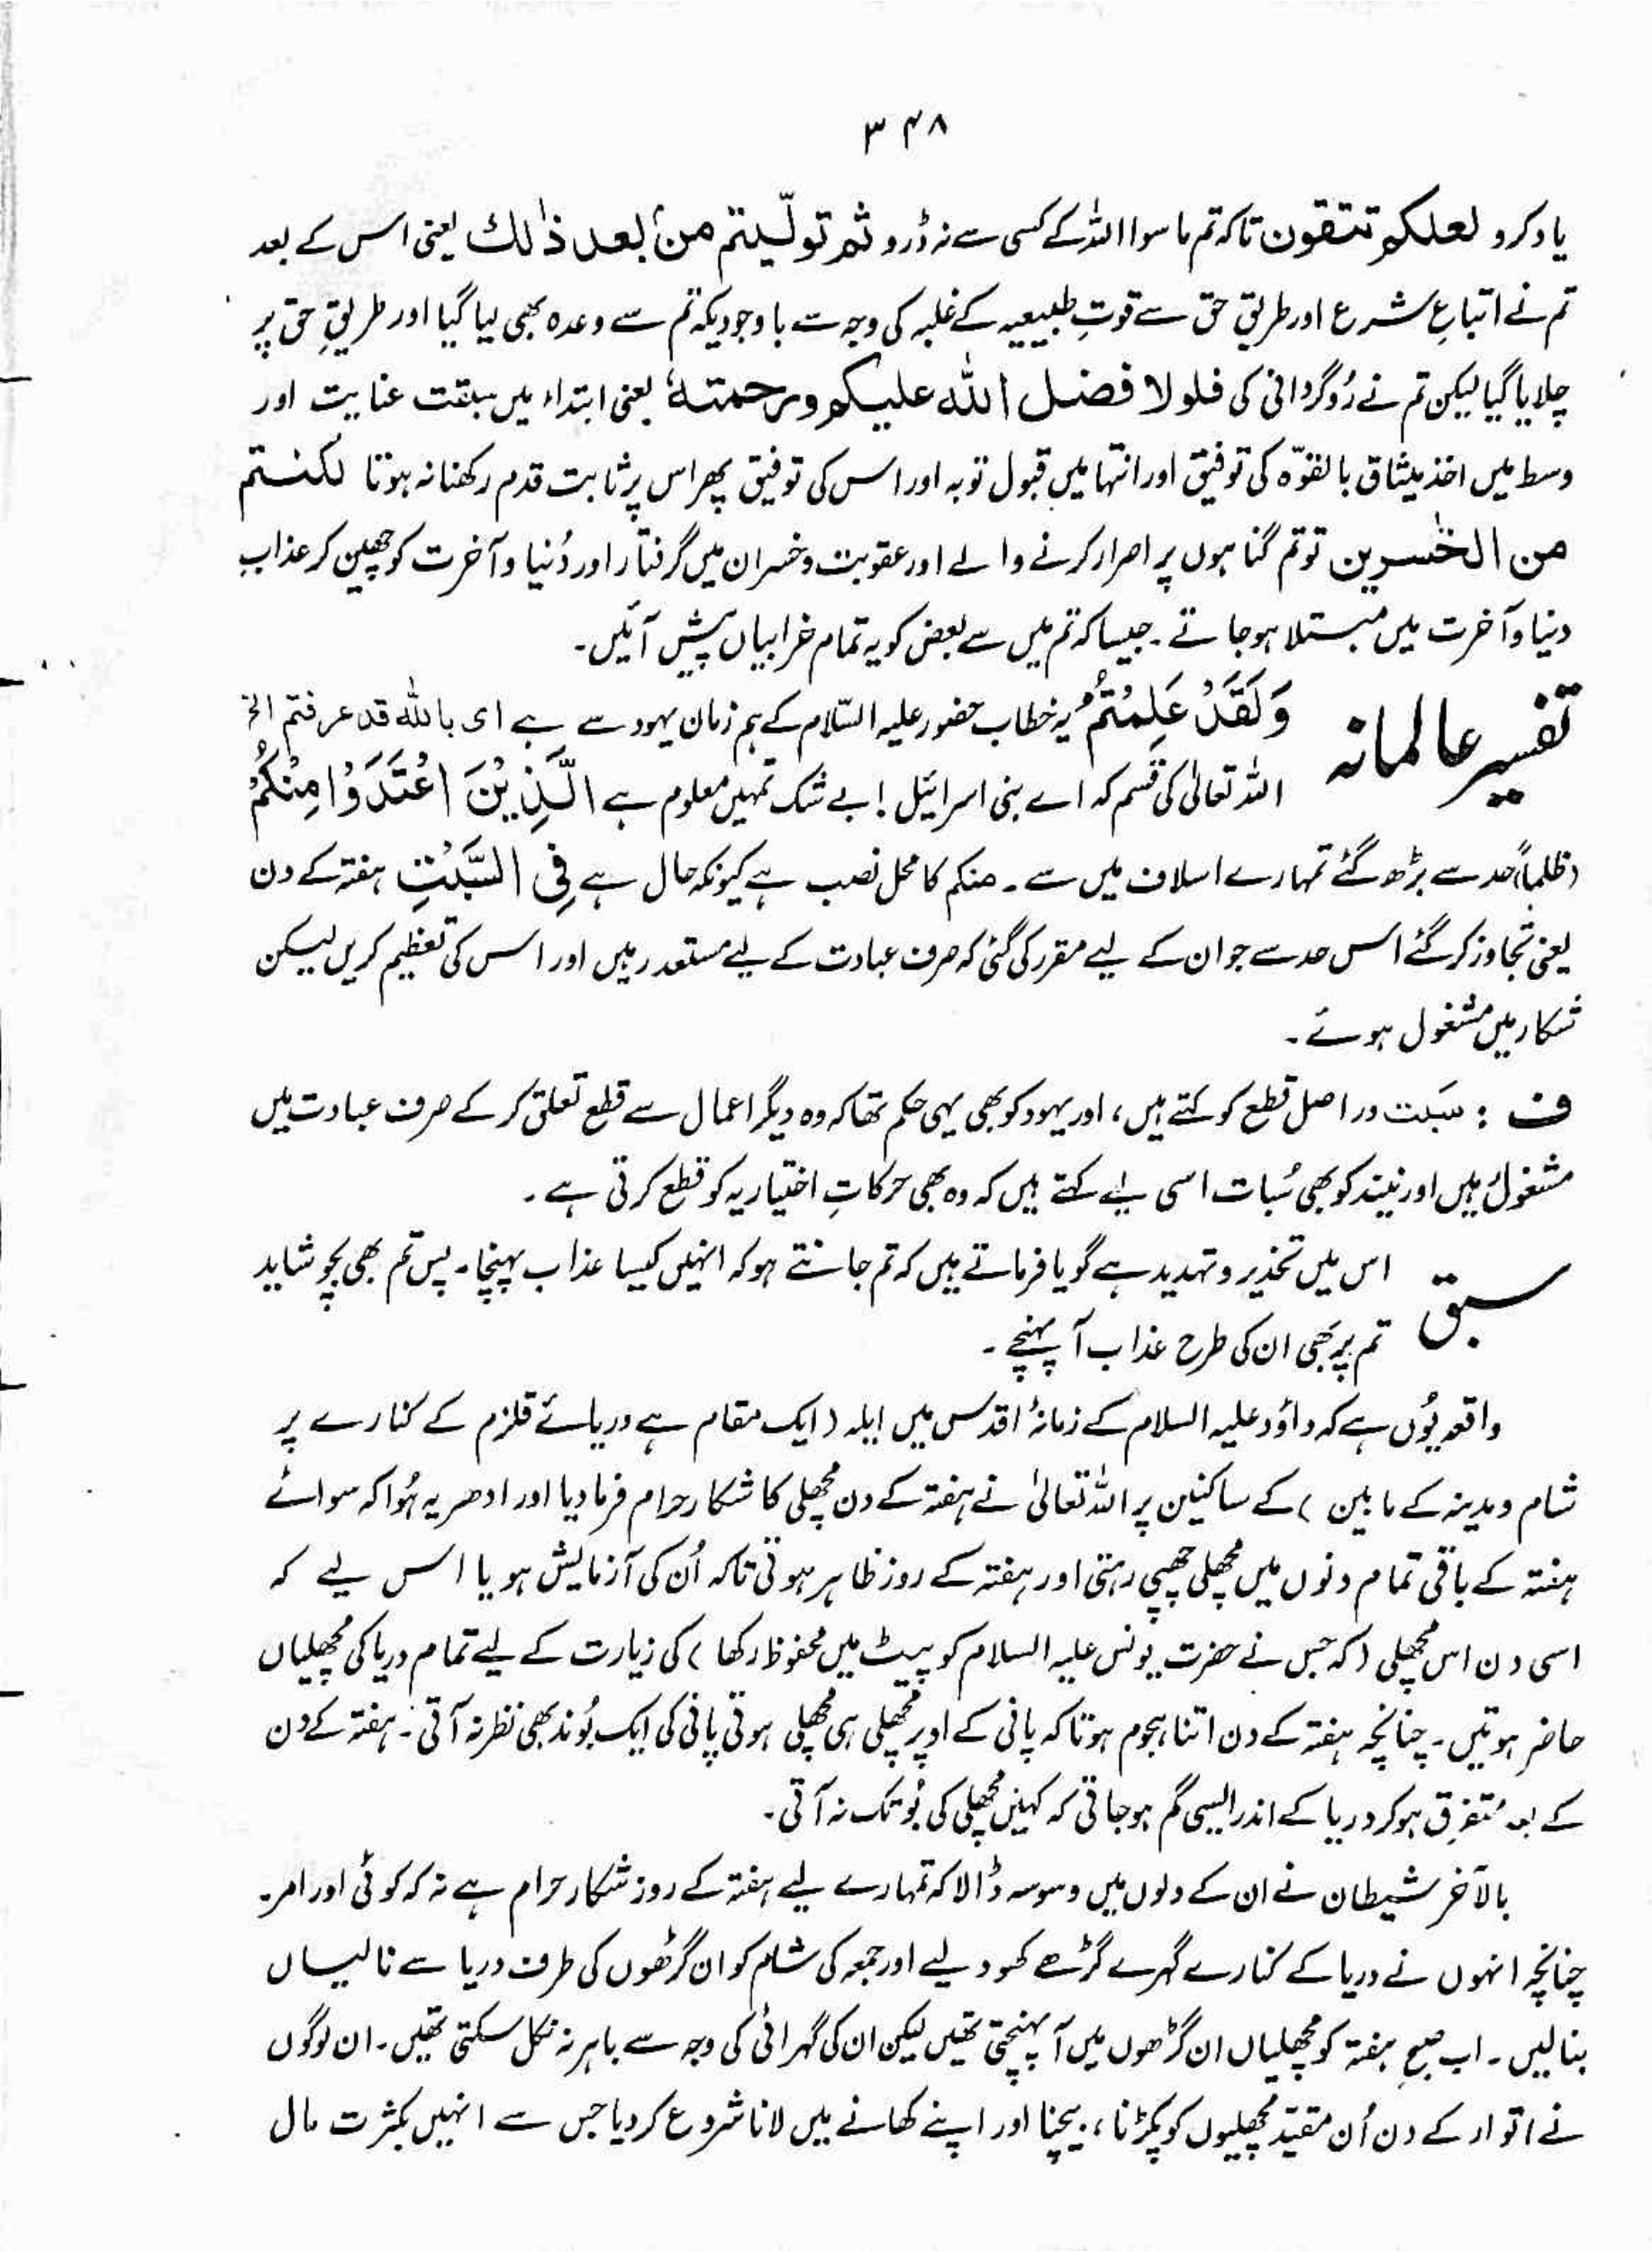 ۳۴۸
یاد کرو لعلکم تتقون تاکہ تم ماسوا اللہ کے کسی سے نہ ڈرو ثم تولّیتم من بعد ذٰلك یعنی اس کے بعد
تم نے اتباعِ شرع اور طریقِ حق سے قوتِ طبیعیہ کے غلبہ کی وجہ سے باوجودیکہ تم سے وعدہ بھی لیا گیا اور طریقِ حق پر
چلایا گیا لیکن تم نے رُوگردانی کی فلولا فضل اللہ علیکم ورحمتہٗ یعنی ابتداء میں سبقت عنایت اور
وسط میں اخذ میثاق بالقوّہ کی توفیق اور انتہا میں قبول توبہ اور اس کی توفیق پھر اس پر ثابت قدم رکھنا نہ ہوتا لکنتم
من الخٰسرین تو تم گناہوں پر اصرار کرنے والے اور عقوبت و خسران میں گرفتار اور دُنیا و آخرت کو چھین کر عذاب
دنیا و آخرت میں مبتلا ہو جاتے۔ جیسا کہ تم میں سے بعض کو یہ تمام خرابیاں پیش آئیں۔
تفسیر عالمانہ وَلَقَدْ عَلِمْتُمْ یہ خطاب حضور علیہ السّلام کے ہم زمان یہود سے ہے ای باللہ قد عرفتم الخ
اللہ تعالیٰ کی قسم کہ اے بنی اسرائیل! بے شک تمہیں معلوم ہے الَّذِیْنَ اعْتَدَوْا مِنْکُمْ
(ظلماً) حد سے بڑھ گئے تمہارے اسلاف میں سے۔ منکم کا محل نصب ہے کیونکہ حال ہے فِی السَّبْتِ ہفتہ کے دن
یعنی تجاوز کر گئے اس حد سے جو ان کے لیے مقرر کی گئی کہ صرف عبادت کے لیے مستعد رہیں اور اس کی تعظیم کریں لیکن
شکار میں مشغول ہوئے۔
ف : سبت دراصل قطع کو کہتے ہیں، اور یہود کو بھی یہی حکم تھا کہ وہ دیگر اعمال سے قطع تعلق کر کے صرف عبادت میں
مشغول ہیں اور نیند کو بھی سُبات اسی لیے کہتے ہیں کہ وہ بھی حرکاتِ اختیاریہ کو قطع کرتی ہے۔
سبق اس میں تحذیر و تہدید ہے گویا فرماتے ہیں کہ تم جانتے ہو کہ انہیں کیسا عذاب پہنچا۔ پس تم بھی بچو شاید
تم پر بھی ان کی طرح عذاب آ پہنچے۔
واقعہ یُوں ہے کہ داؤد علیہ السلام کے زمانۂ اقدس میں ایلہ (ایک مقام ہے دریائے قلزم کے کنارے پر
شام و مدینہ کے مابین) کے ساکنین پر اللہ تعالیٰ نے ہفتہ کے دن مچھلی کا شکار حرام فرما دیا اور ادھر یہ ہُوا کہ سوائے
ہفتہ کے باقی تمام دنوں میں مچھلی چھپی رہتی اور ہفتہ کے روز ظاہر ہوتی تاکہ اُن کی آزمایش ہو یا اس لیے کہ
اسی دن اس مچھلی (کہ جس نے حضرت یونس علیہ السلام کو پیٹ میں محفوظ رکھا) کی زیارت کے لیے تمام دریا کی مچھلیاں
حاضر ہوتیں۔ چنانچہ ہفتہ کے دن اتنا ہجوم ہوتا کہ پانی کے اوپر مچھلی ہی مچھلی ہوتی پانی کی ایک بُوند بھی نظر نہ آتی۔ ہفتہ کے دن
کے بعد متفرق ہو کر دریا کے اندر ایسی گم ہو جاتی کہ کہیں مچھلی کی بُو تک نہ آتی۔
بالآخر شیطان نے ان کے دلوں میں وسوسہ ڈالا کہ تمہارے لیے ہفتہ کے روز شکار حرام ہے نہ کہ کوئی اور امر۔
چنانچہ انہوں نے دریا کے کنارے گہرے گڑھے کھود لیے اور جمعہ کی شام کو ان گڑھوں کی طرف دریا سے نالیاں
بنا لیں۔ اب صبح ہفتہ کو مچھلیاں ان گڑھوں میں آ پہنچتی تھیں لیکن ان کی گہرائی کی وجہ سے باہر نہ نکل سکتی تھیں۔ ان لوگوں
نے اتوار کے دن اُن مقیّد مچھلیوں کو پکڑنا، بیچنا اور اپنے کھانے میں لانا شروع کر دیا جس سے انہیں بکثرت مال